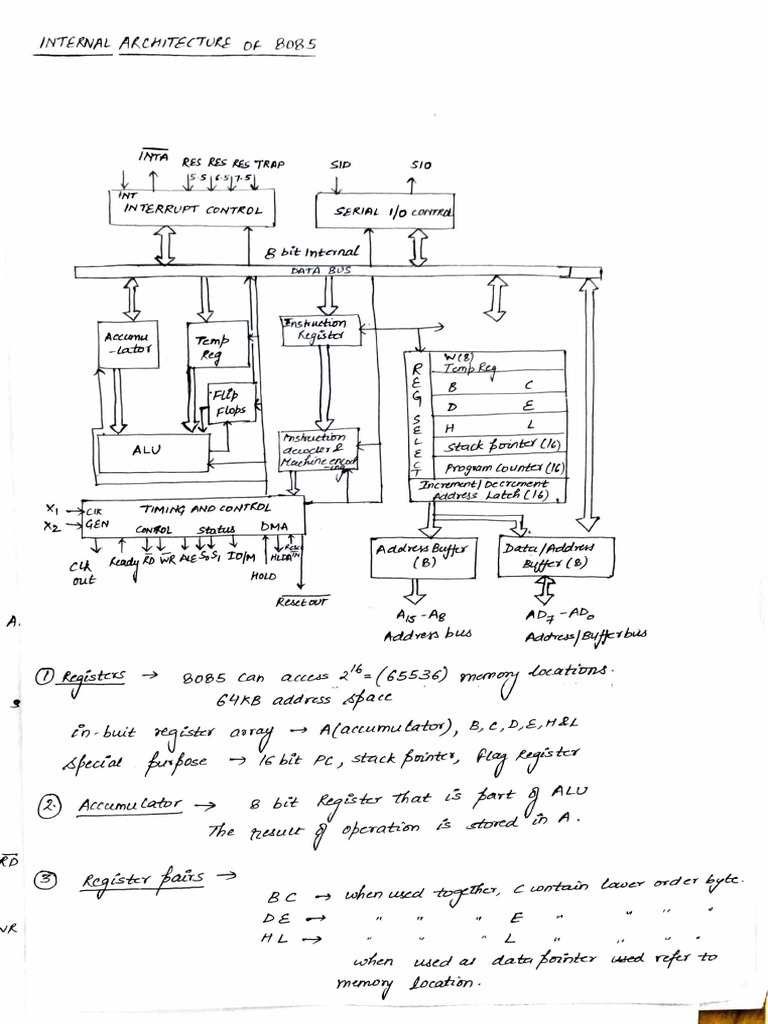 INTERNAL ARCHITECTURE OF 8085
INTA
RES RES RES TRAP
5.5 6.5 7.5
SID
SIO
INT
INTERRUPT CONTROL
SERIAL I/O CONTROL
8 bit Internal
DATA BUS
Accumu
-lator
Temp
Reg
Instruction
Register
Flip
Flops
ALU
Instruction
decoder &
Machine encod
-ing
REG SELECT
W(8)
Temp Reg
B C
D E
H L
Stack pointer (16)
Program Counter (16)
Increment/Decrement
Address Latch (16)
X1
X2
CLK
GEN
TIMING AND CONTROL
CONTROL Status DMA
Clk
out
Ready RD WR ALE S0 S1 IO/M
HOLD
HLDA
Reset
IN
Reset out
Address Buffer
(8)
Data/Address
Buffer (8)
A15 - A8
Address bus
AD7 - AD0
Address/Buffer bus
A.
① Registers → 8085 can access 2^16 = (65536) memory locations.
64KB address space
in-buit register array → A(accumulator), B, C, D, E, H & L
Special purpose → 16 bit PC, stack pointer, Flag Register
② Accumulator → 8 bit Register that is part of ALU
The result of operation is stored in A.
RD
③ Register pairs →
BC → when used together, C contain lower order byte.
DE → " " " E " " " "
WR
HL → " " " L " " " "
when used as data pointer used refer to
memory location.